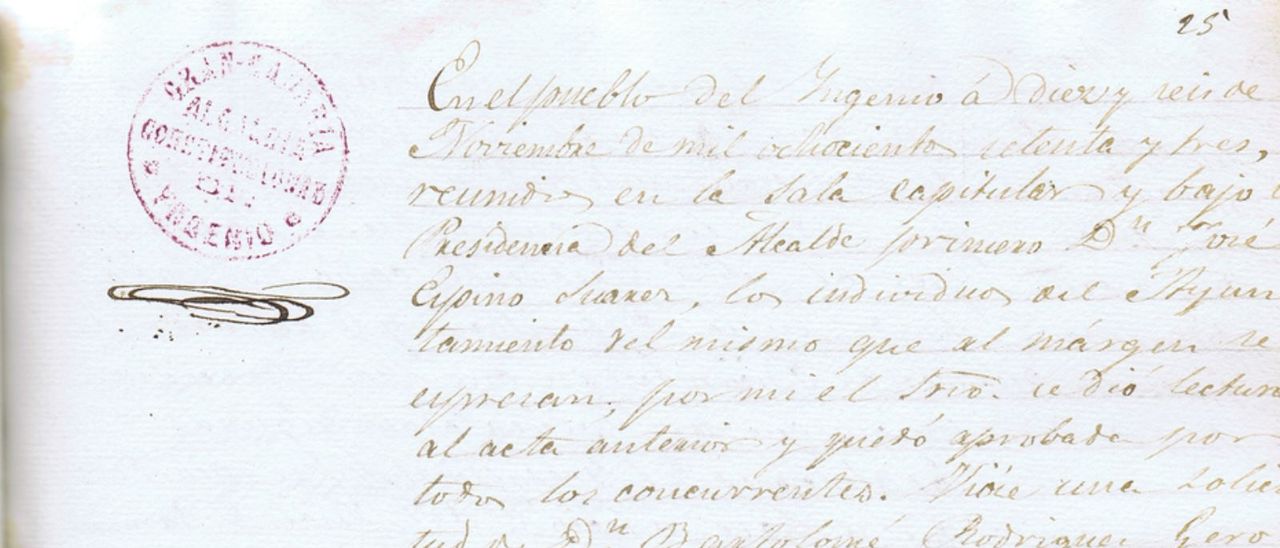 25
GRAN-CANARIA
ALCALDIA
CONSTITUCIONAL
DEL
YNGENIO
En el pueblo del Yngenio á diez y seis de
Noviembre de mil ochocientos setenta y tres,
reunidos en la Sala capitular y bajo
Presidencia del Alcalde primero Dn José
Espino Suarez, los individuos del Ayun
tamiento del mismo que al márgen se
espresan, por mi el Srio. se dió lectura
al acta anterior y quedó aprobada por
todos los concurrentes. Vióse una solici
tud de Dn Bartolomé Rodriguez